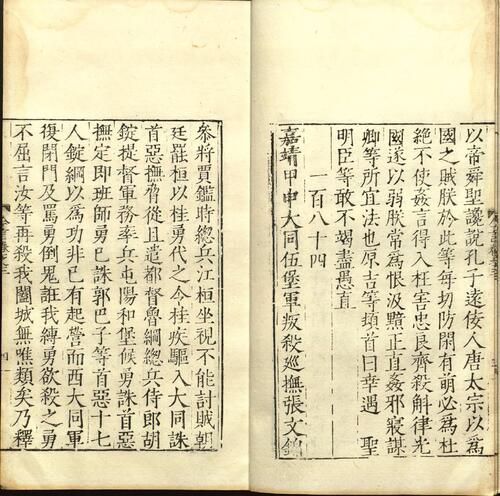 以帝舜聖讒說孔子遠佞人唐太宗以爲
國之賊朕於此等每切防閑有萌必爲杜
絶不使姦言得入枉害忠良齊殺斛律光
國遂以弱朕常爲恨汲黯正直姦邪寢謀
卿等所宜法也原吉等頓首曰幸遇 聖
明臣等敢不竭盡愚直
一百八十四
嘉靖甲申大同伍堡軍叛殺巡撫張文錦
參將賈鑑時總兵江桓坐視不能討賊朝
廷罷桓以桂勇代之令桂疾驅入大同誅
首惡撫脅從且遣都督魯綱總兵侍郎胡
錠提督軍務率兵屯陽和堡候勇誅首惡
撫定即班師勇已誅郭巴子等首惡十七
人錠綱以爲功非已有起營而西大同軍
復閉門及罵勇倒鬼誑我縛勇欲殺之勇
不屈言汝等再殺我闔城無噍類矣乃釋